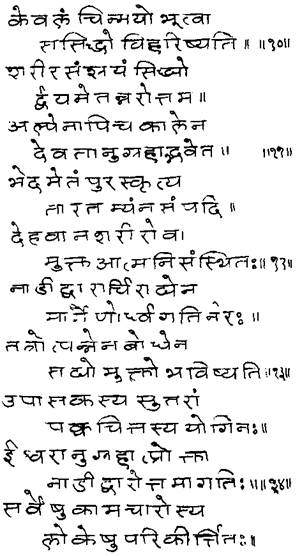 केवलं चिन्मयो भूत्वा
स सिद्धो विहरिष्यति॥ ॥१०॥
शरीरसंश्रयं सिद्ध्यो
र्द्वयमेतन्नरोत्तम॥
अल्पेनापिच कालेन
देवतानुग्रहाद्भवेत॥ ॥११॥
भेदमेतंपुरस्कृत्य
तारतम्यंनसंपदि॥
देहवानशरीरोवा
मुक्तआत्मनिसंस्थितः॥१२॥
नाडीद्वारार्चिराद्येन
मार्गेणोर्ध्वगतिर्नरः॥
तत्रोत्पन्नेनबोधेन
सद्योमुक्तोभविष्यति॥१३॥
उपासकस्य सुतरां
पक्वचित्तस्ययोगिनः॥
ईश्वरानुग्रहात्प्रोक्ता
नाडीद्वारोत्तमागतिः॥॥१४॥
सर्वेषुकामचारोस्य
लोकेषुपरिकीर्त्तितः॥